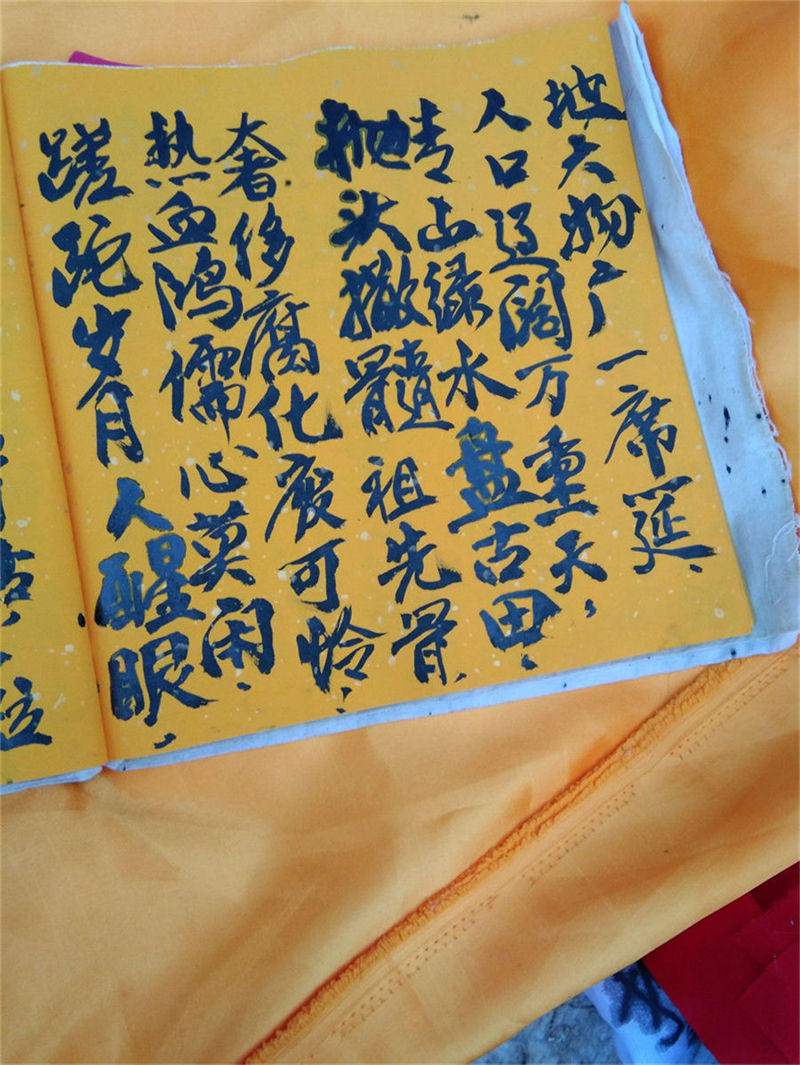 地大物广一席延、
人口辽阔万重天、
青山绿水盘古田、
抛头撒髓祖先骨、
奢侈腐化废可怜、
热血鸿儒心莫闲、
蹉跎岁月人醒眼、